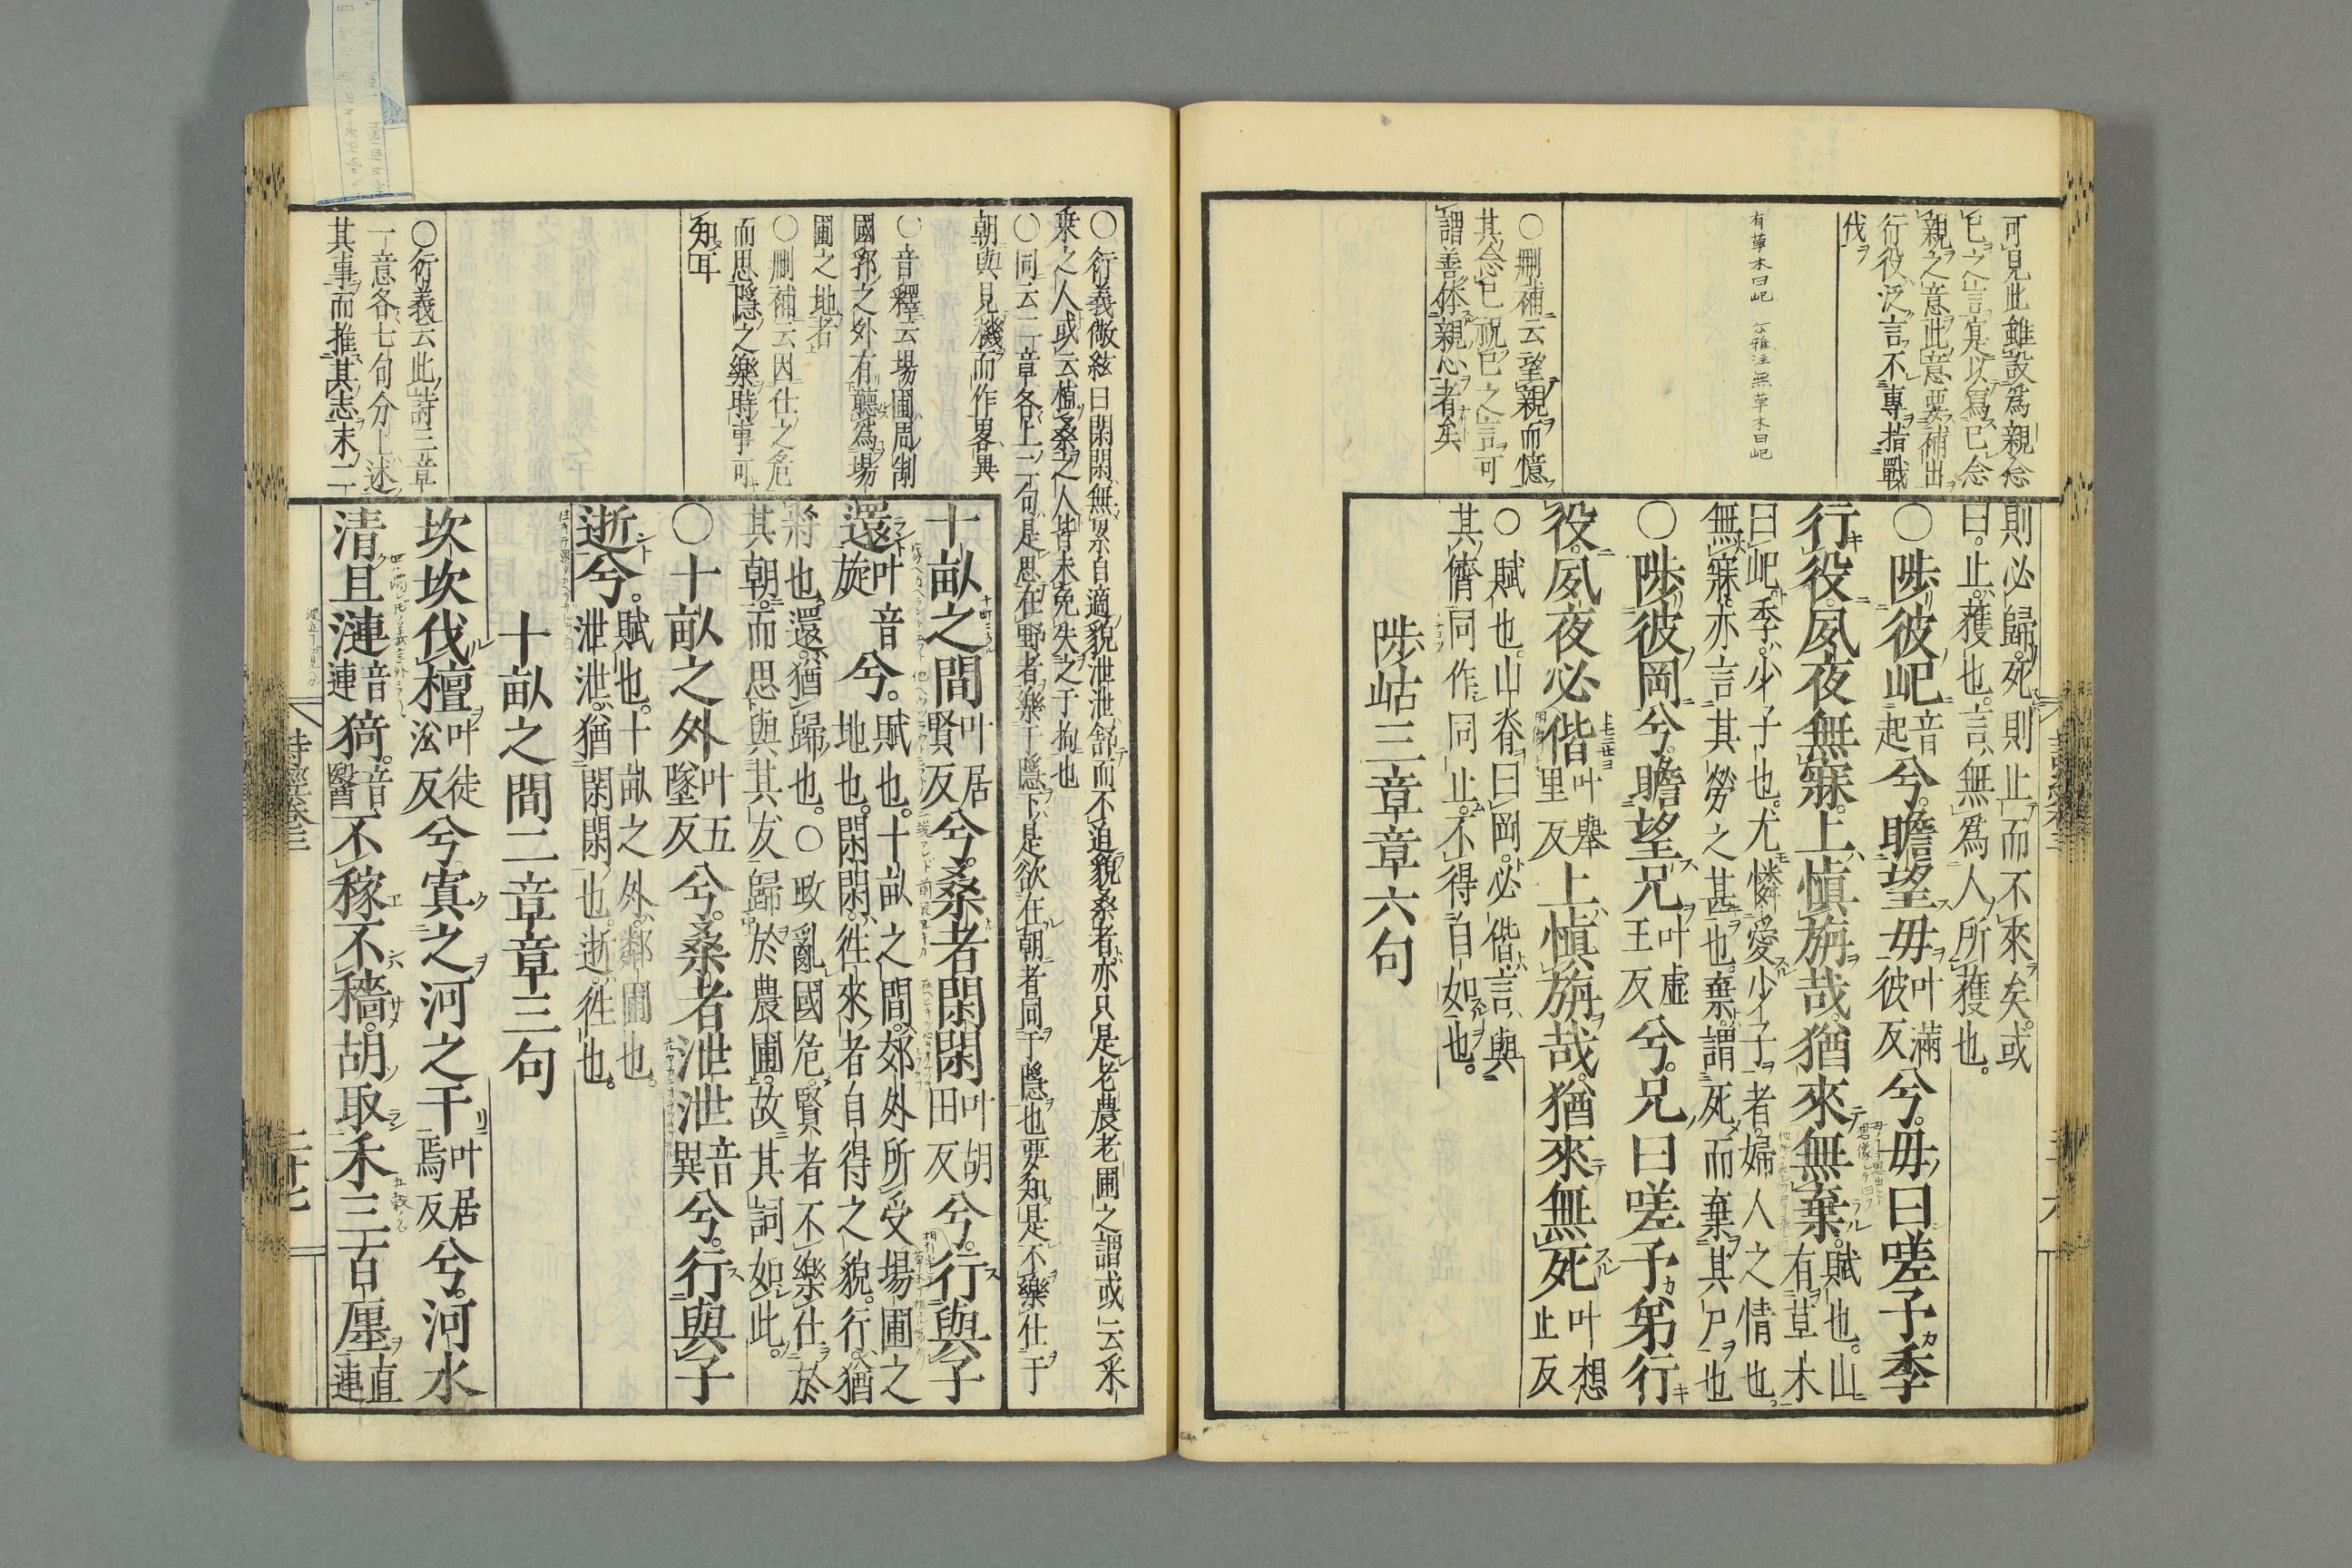 可見此雖設爲親念
已之言寔以寫已念
親之意此意要補出
行役泛言不專指戰
伐
有草木曰屺 尒雅注無草木曰屺
○刪補云望親而憶
其念已祝已之言可
謂善体親心者矣
則必歸死則止而不來矣或
曰止獲也言無爲人所獲也
○陟彼屺音起兮瞻望母叶滿彼反兮母曰嗟予季
行役夙夜無寐上愼旃哉猶來無棄賦也山有草木
曰屺季少子也尤憐愛少子者婦人之情也
無寐亦言其勞之甚也棄謂死而棄其尸也
○陟彼岡兮瞻望兄叶虛王反兮兄曰嗟予弟行
役夙夜必偕叶舉里反上愼旃哉猶來無死叶想止反
○賦也山脊曰岡必偕言與
其儕同作同止不得自如也
陟岵三章章六句
○衍義儆弦曰閑閑無累自適貌泄泄舒而不迫貌桑者亦只是老農老圃之謂或云采
桑之人或云植桑之人皆未免失之于拘也
○同云二章各上二句是思在野者樂于隱下是欲在朝者同于隱也要知是不樂仕于
朝與見機而作畧異
○音釋云場圃周制
國郛之外有聽爲場
圃之地者
○刪補云因仕之危
而思隱之樂時事可
知耳
○衍義云此詩三章
一意各七句分上述
其事而推其志末二
十畝之間叶居賢反兮桑者閑閑叶胡田反兮行與子
還叶音旋兮賦也十畝之間郊外所受場圃之
地也閑閑徃來者自得之貌行猶
將也還猶歸也○政亂國危賢者不樂仕於
其朝而思與其友歸於農圃故其詞如此
○十畝之外叶五墜反兮桑者泄泄音異兮行與子
逝兮賦也十畝之外鄰圃也
泄泄猶閑閑也逝徃也
十畝之間二章章三句
坎坎伐檀叶徒㳂反兮寘之河之干叶居焉反兮河水
清且漣音連猗音醫不稼不穡胡取禾三百廛直連
詩經卷三
二十七